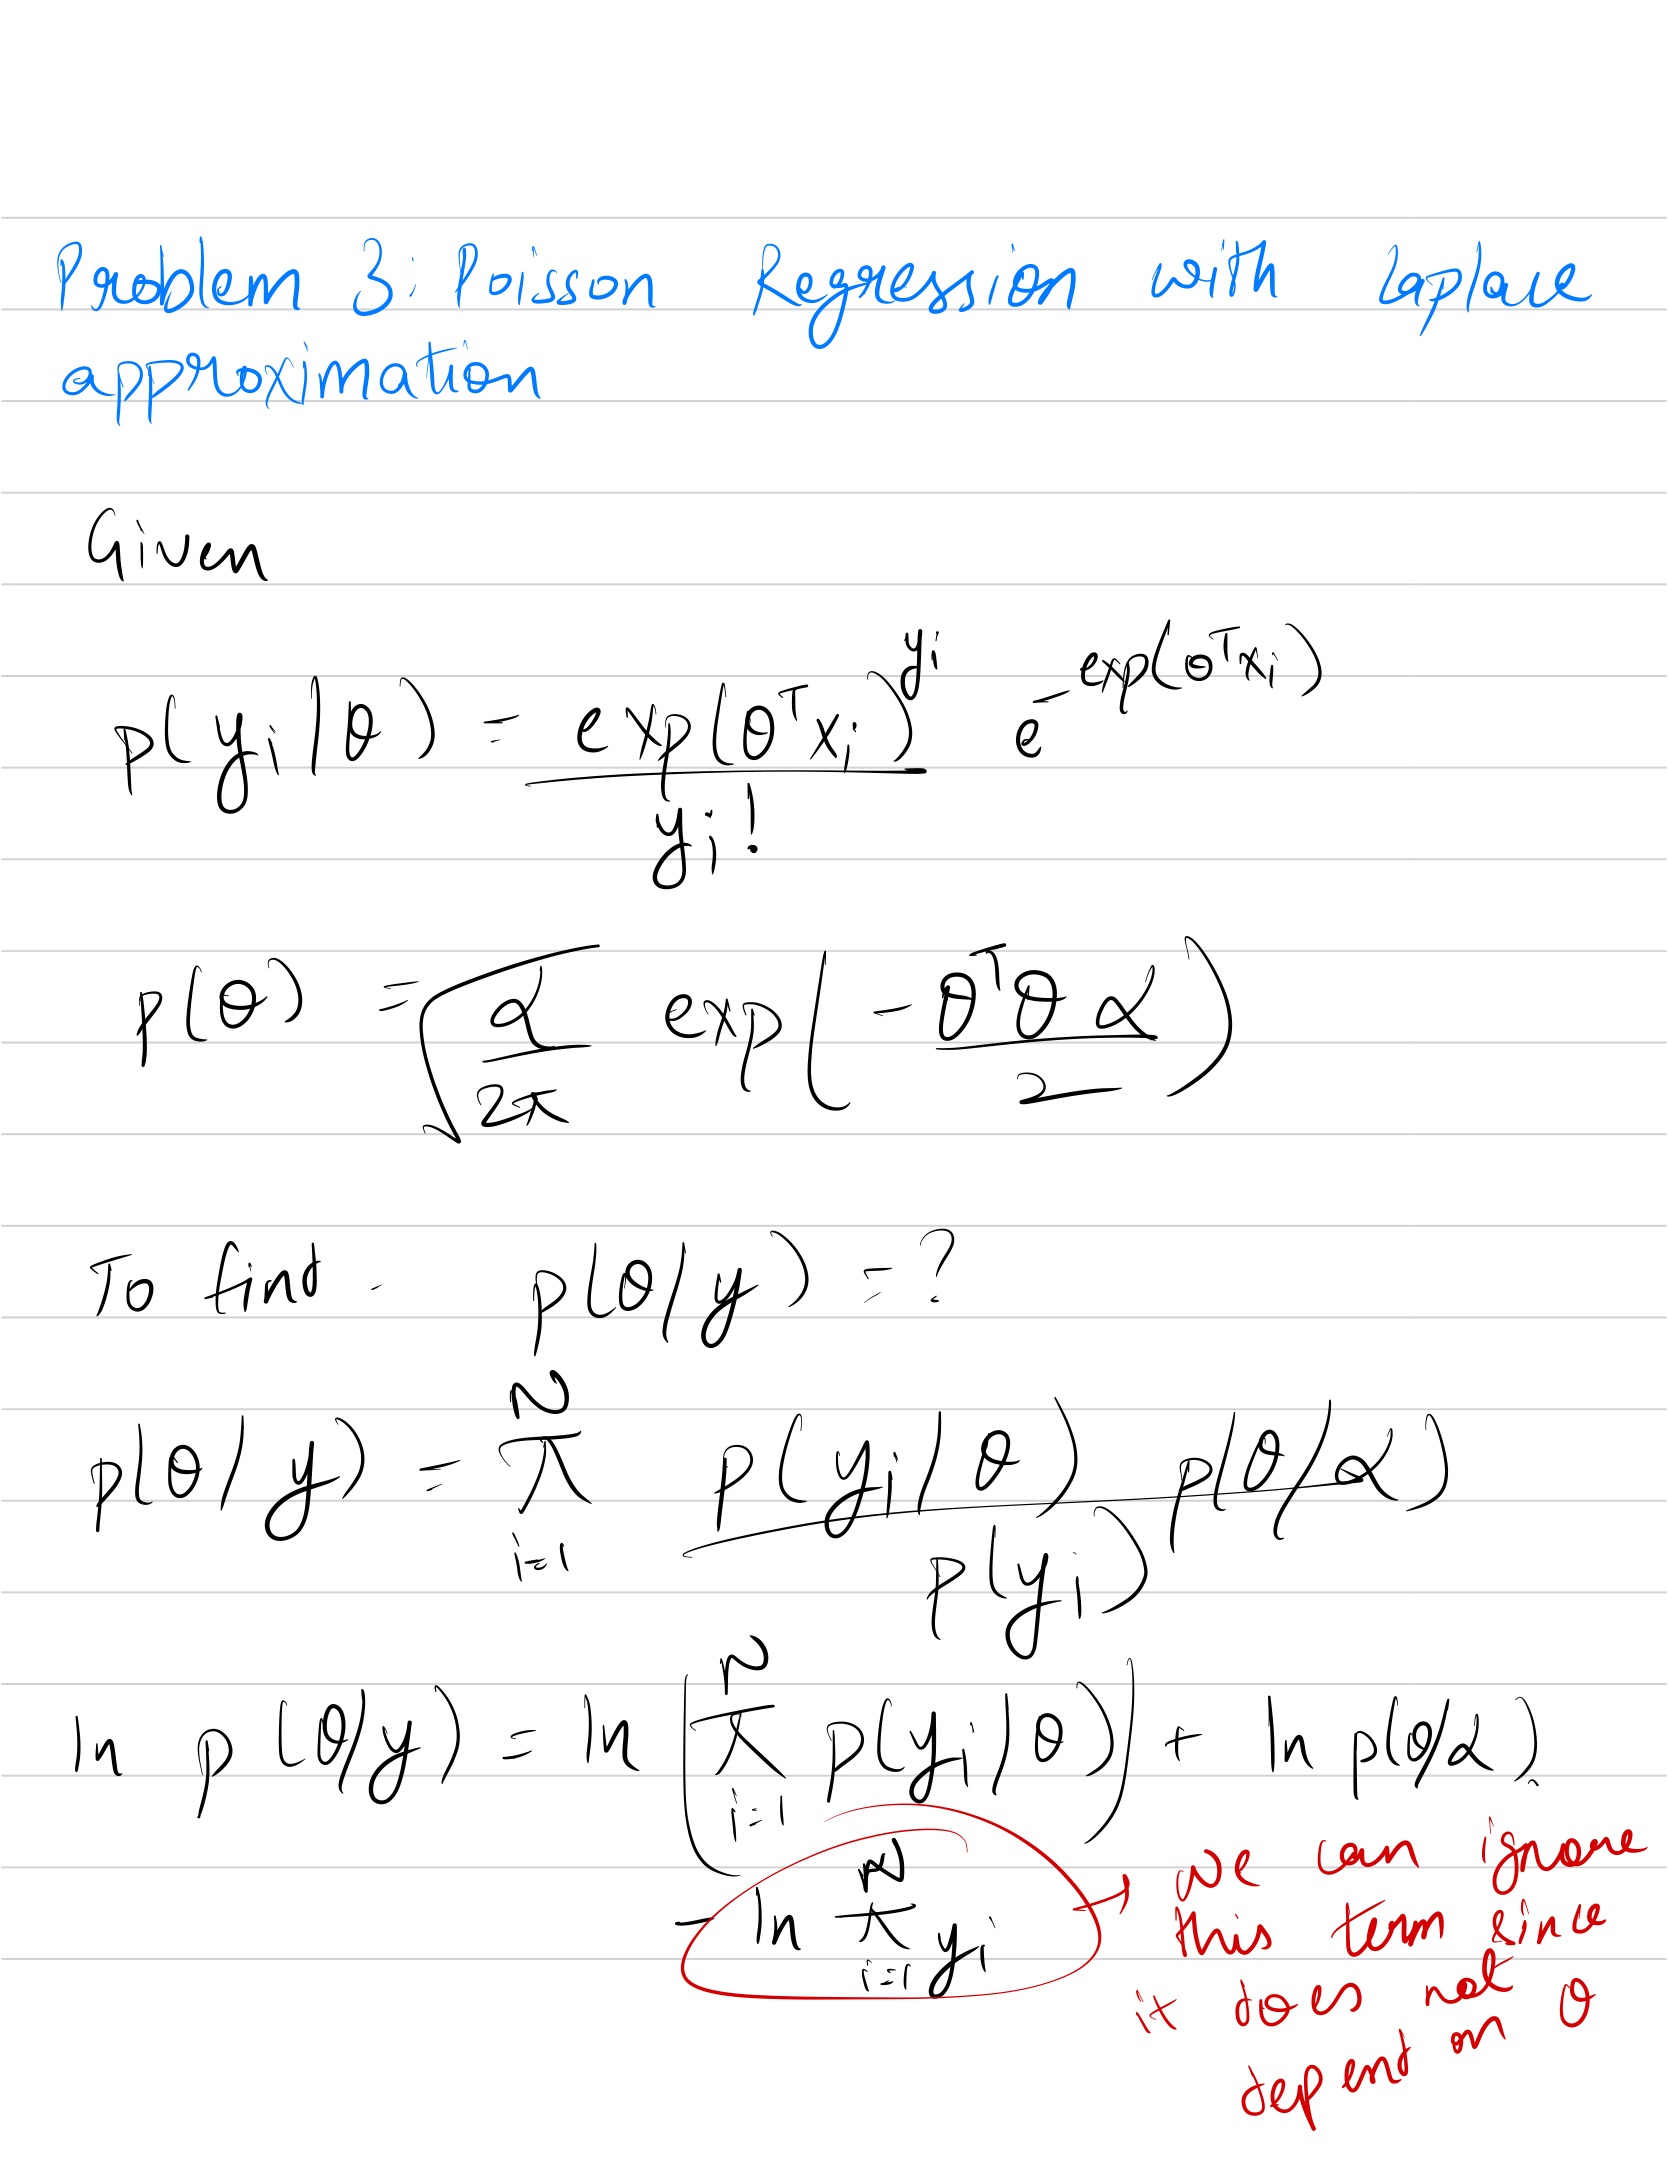 Problem 3: Poisson Regression with Laplace
approximation
Given
p(y_i | θ) = exp(θ^T x_i)^{y_i} / y_i! e^{-exp(θ^T x_i)}
p(θ) = √(α / 2π) exp(- θ^T θ α / 2)
To find - p(θ/y) = ?
p(θ/y) = π_{i=1}^{N} p(y_i | θ) p(θ/α) / p(y_i)
ln p(θ/y) = ln (π_{i=1}^{N} p(y_i | θ)) + ln p(θ/α)
- ln π_{i=1}^{N} y_i → we can ignore
this term since
it does not
depend on θ